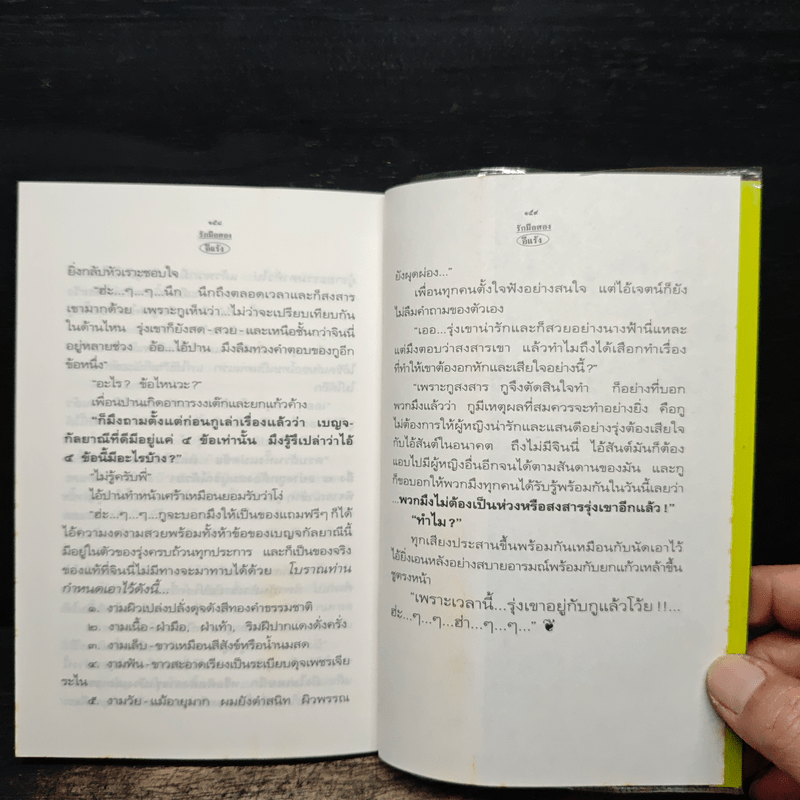 ๑๕๘
รักมือทอง
ตีแรัง
ยิ่งกลับหัวเราะชอบใจ
"ฮ่ะ...ๆ...ๆ...นึก นึกถึงตลอดเวลาและก็สงสาร
เขามากด้วย เพราะกูเห็นว่า...ไม่ว่าจะเปรียบเทียบกัน
ในด้านไหน รุ่งเขาก็ยังสด-สวย-และเหนือชั้นกว่าจินนี่
อยู่หลายช่วง อ้อ...ไอ้ปาน มึงลืมทวงคำตอบของกูอีก
ข้อหนึ่ง"
"อะไร? ข้อไหนวะ?"
เพื่อนปานเกิดอาการงงเต๊กและยกแก้วค้าง
"ก็มึงถามตั้งแต่ก่อนกูเล่าเรื่องแล้วว่า เบญจ-
กัลยาณีที่ดีมีอยู่แค่ ๔ ข้อเท่านั้น มึงรู้รึเปล่าว่าไอ้
๔ ข้อนี้มีอะไรบ้าง?"
"ไม่รู้ครับพี่"
ไอ้ปานทำหน้าเศร้าเหมือนยอมรับว่าโง่
"ฮ่ะ...ๆ...ๆ...กูจะบอกมึงให้เป็นของแถมฟรีๆ ก็ได้
ไอ้ความงดงามสวยพร้อมทั้งห้าข้อของเบญจกัลยาณีนี้
มีอยู่ในตัวของรุ่งครบถ้วนทุกประการ และก็เป็นของจริง
ของแท้ที่จินนี่ไม่มีทางจะมาทาบได้ด้วย โบราณท่าน
กำหนดเอาไว้ดังนี้...
๑. งามผิวเปล่งปลั่งดุจดังสีทองคำธรรมชาติ
๒. งามเนื้อ-ฝ่ามือ, ฝ่าเท้า, ริมฝีปากแดงดั่งครั่ง
๓. งามเล็บ-ขาวเหมือนสีสังข์หรือน้ำนมสด
๔. งามฟัน-ขาวสะอาดเรียงเป็นระเบียบดุจเพชรเจีย
ระไน
๕. งามวัย-แม้อายุมาก ผมยังดำสนิท ผิวพรรณ
๑๕๙
รักมือทอง
ตีแรัง
ยังผุดผ่อง..."
เพื่อนทุกคนตั้งใจฟังอย่างสนใจ แต่ไอ้เจตน์ก็ยัง
ไม่ลืมคำถามของตัวเอง
"เออ...รุ่งเขาน่ารักและก็สวยอย่างนางฟ้านี่แหละ
แต่มึงตอบว่าสงสารเขา แล้วทำไมถึงได้เสือกทำเรื่อง
ที่ทำให้เขาต้องอกหักและเสียใจอย่างนี้วะ?"
"เพราะกูสงสาร กูจึงตัดสินใจทำ ก็อย่างที่บอก
พวกมึงแล้วว่า กูมีเหตุผลที่สมควรจะทำอย่างยิ่ง คือกู
ไม่ต้องการให้ผู้หญิงน่ารักและแสนดีอย่างรุ่งต้องเสียใจ
กับไอ้สันต์ในอนาคต ถึงไม่มีจินนี่ ไอ้สันต์มันก็ต้อง
แอบไปมีผู้หญิงอื่นอีกจนได้ตามสันดานของมัน และกู
ก็ขอบอกให้พวกมึงทุกคนได้รับรู้พร้อมกันในวันนี้เลยว่า
...พวกมึงไม่ต้องเป็นห่วงหรือสงสารรุ่งเขาอีกแล้ว!"
"ทำไม?"
ทุกเสียงประสานขึ้นพร้อมกันเหมือนกับนัดเอาไว้
ไอ้ยิ่งเอนหลังอย่างสบายอารมณ์พร้อมกับยกแก้วเหล้าขึ้น
ชูตรงหน้า
"เพราะเวลานี้...รุ่งเขาอยู่กับกูแล้วโว้ย!!...
ฮ่ะ...ๆ...ๆ...ฮ่า...ๆ...ๆ..."